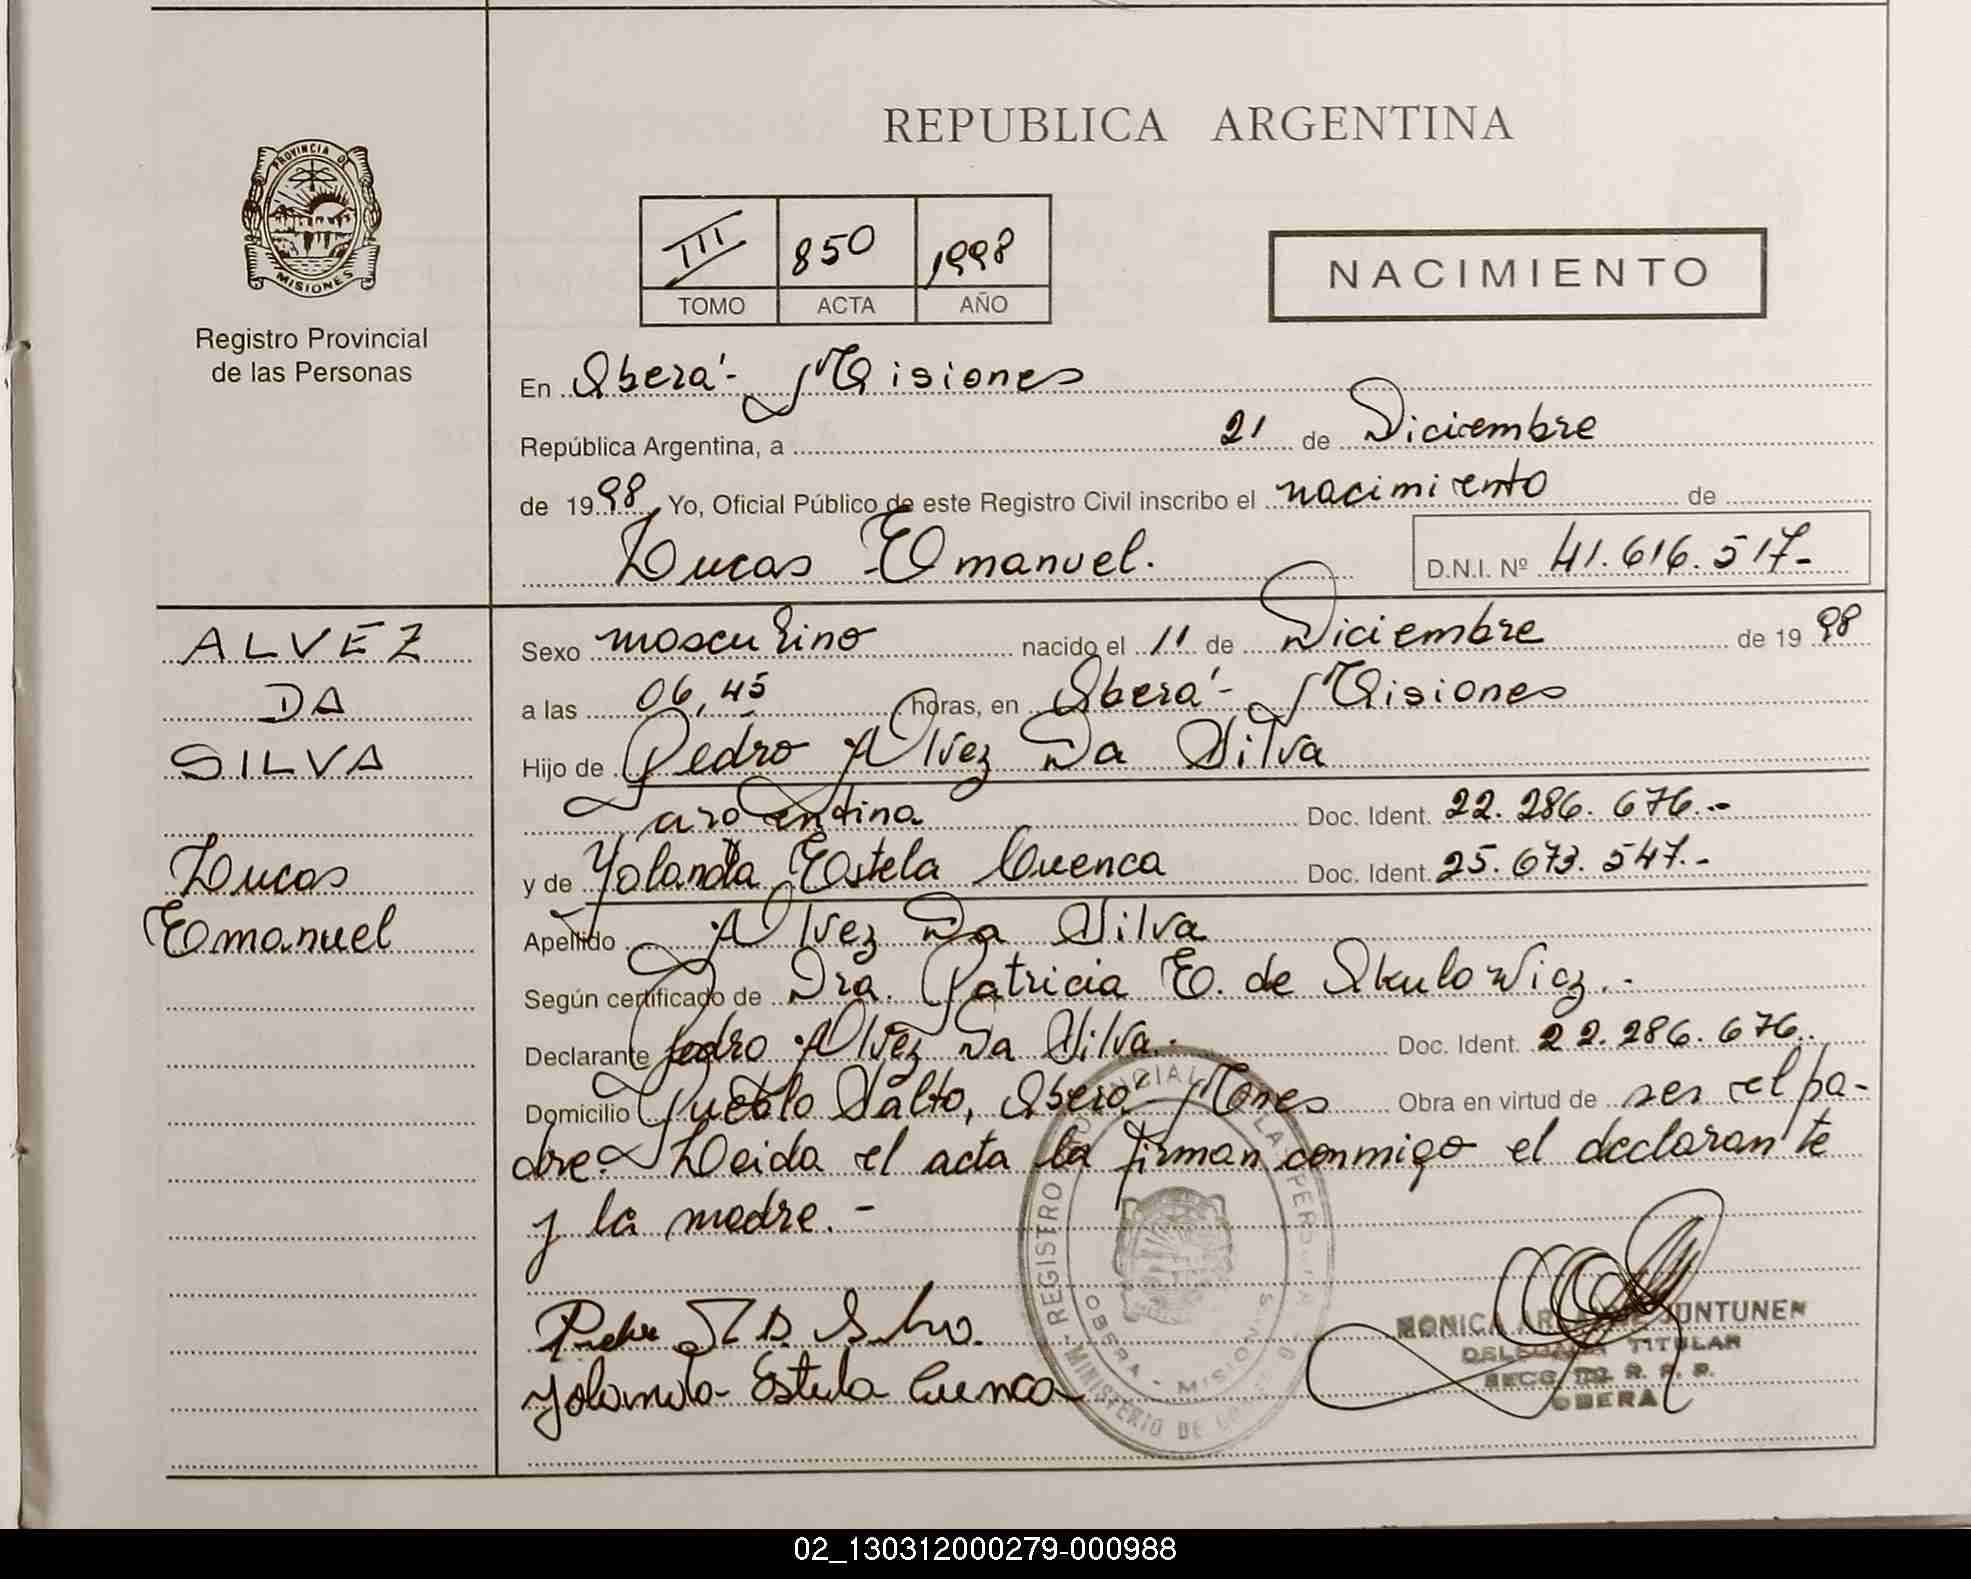 REPUBLICA ARGENTINA
PROVINCIA DE
MISIONES
Registro Provincial
de las Personas
III 850 1998
TOMO ACTA AÑO
NACIMIENTO
En Oberá - Misiones
República Argentina, a 21 de Diciembre
de 1998 Yo, Oficial Público de este Registro Civil inscribo el nacimiento de
Lucas Emanuel.
D.N.I. Nº 41.616.517-
ALVEZ
DA
SILVA
Lucas
Emanuel
Sexo masculino nacido el 11 de Diciembre de 1998
a las 06,45 horas, en Oberá - Misiones
Hijo de Pedro Alvez Da Silva
argentina Doc. Ident. 22.286.676.-
y de Yolanda Estela Cuenca Doc. Ident. 25.673.547.-
Apellido Alvez Da Silva
Según certificado de Dra. Patricia E. de Skulowicz.-
Declarante Pedro Alvez Da Silva.- Doc. Ident. 22.286.676.
Domicilio Pueblo Salto, Oberá - Mnes Obra en virtud de ser el pa-
dre. Leida el acta la firman conmigo el declarante
y la madre.-
Pedro A D Silva.
Yolanda Estela Cuenca
REGISTRO PROVINCIAL DE LAS PERSONAS
OBERA - MISIONES
MINISTERIO DE
MONICA JUNTUNEN
DELEGADA TITULAR
SECC. R. P. P.
OBERA
02_130312000279-000988